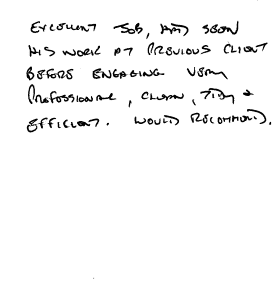 EXCELLENT JOB, HAD SEEN
HIS WORK AT PREVIOUS CLIENT
BEFORE ENGAGING VERY
PROFESSIONAL, CLEAN, TIDY &
EFFICIENT. WOULD RECOMMEND.